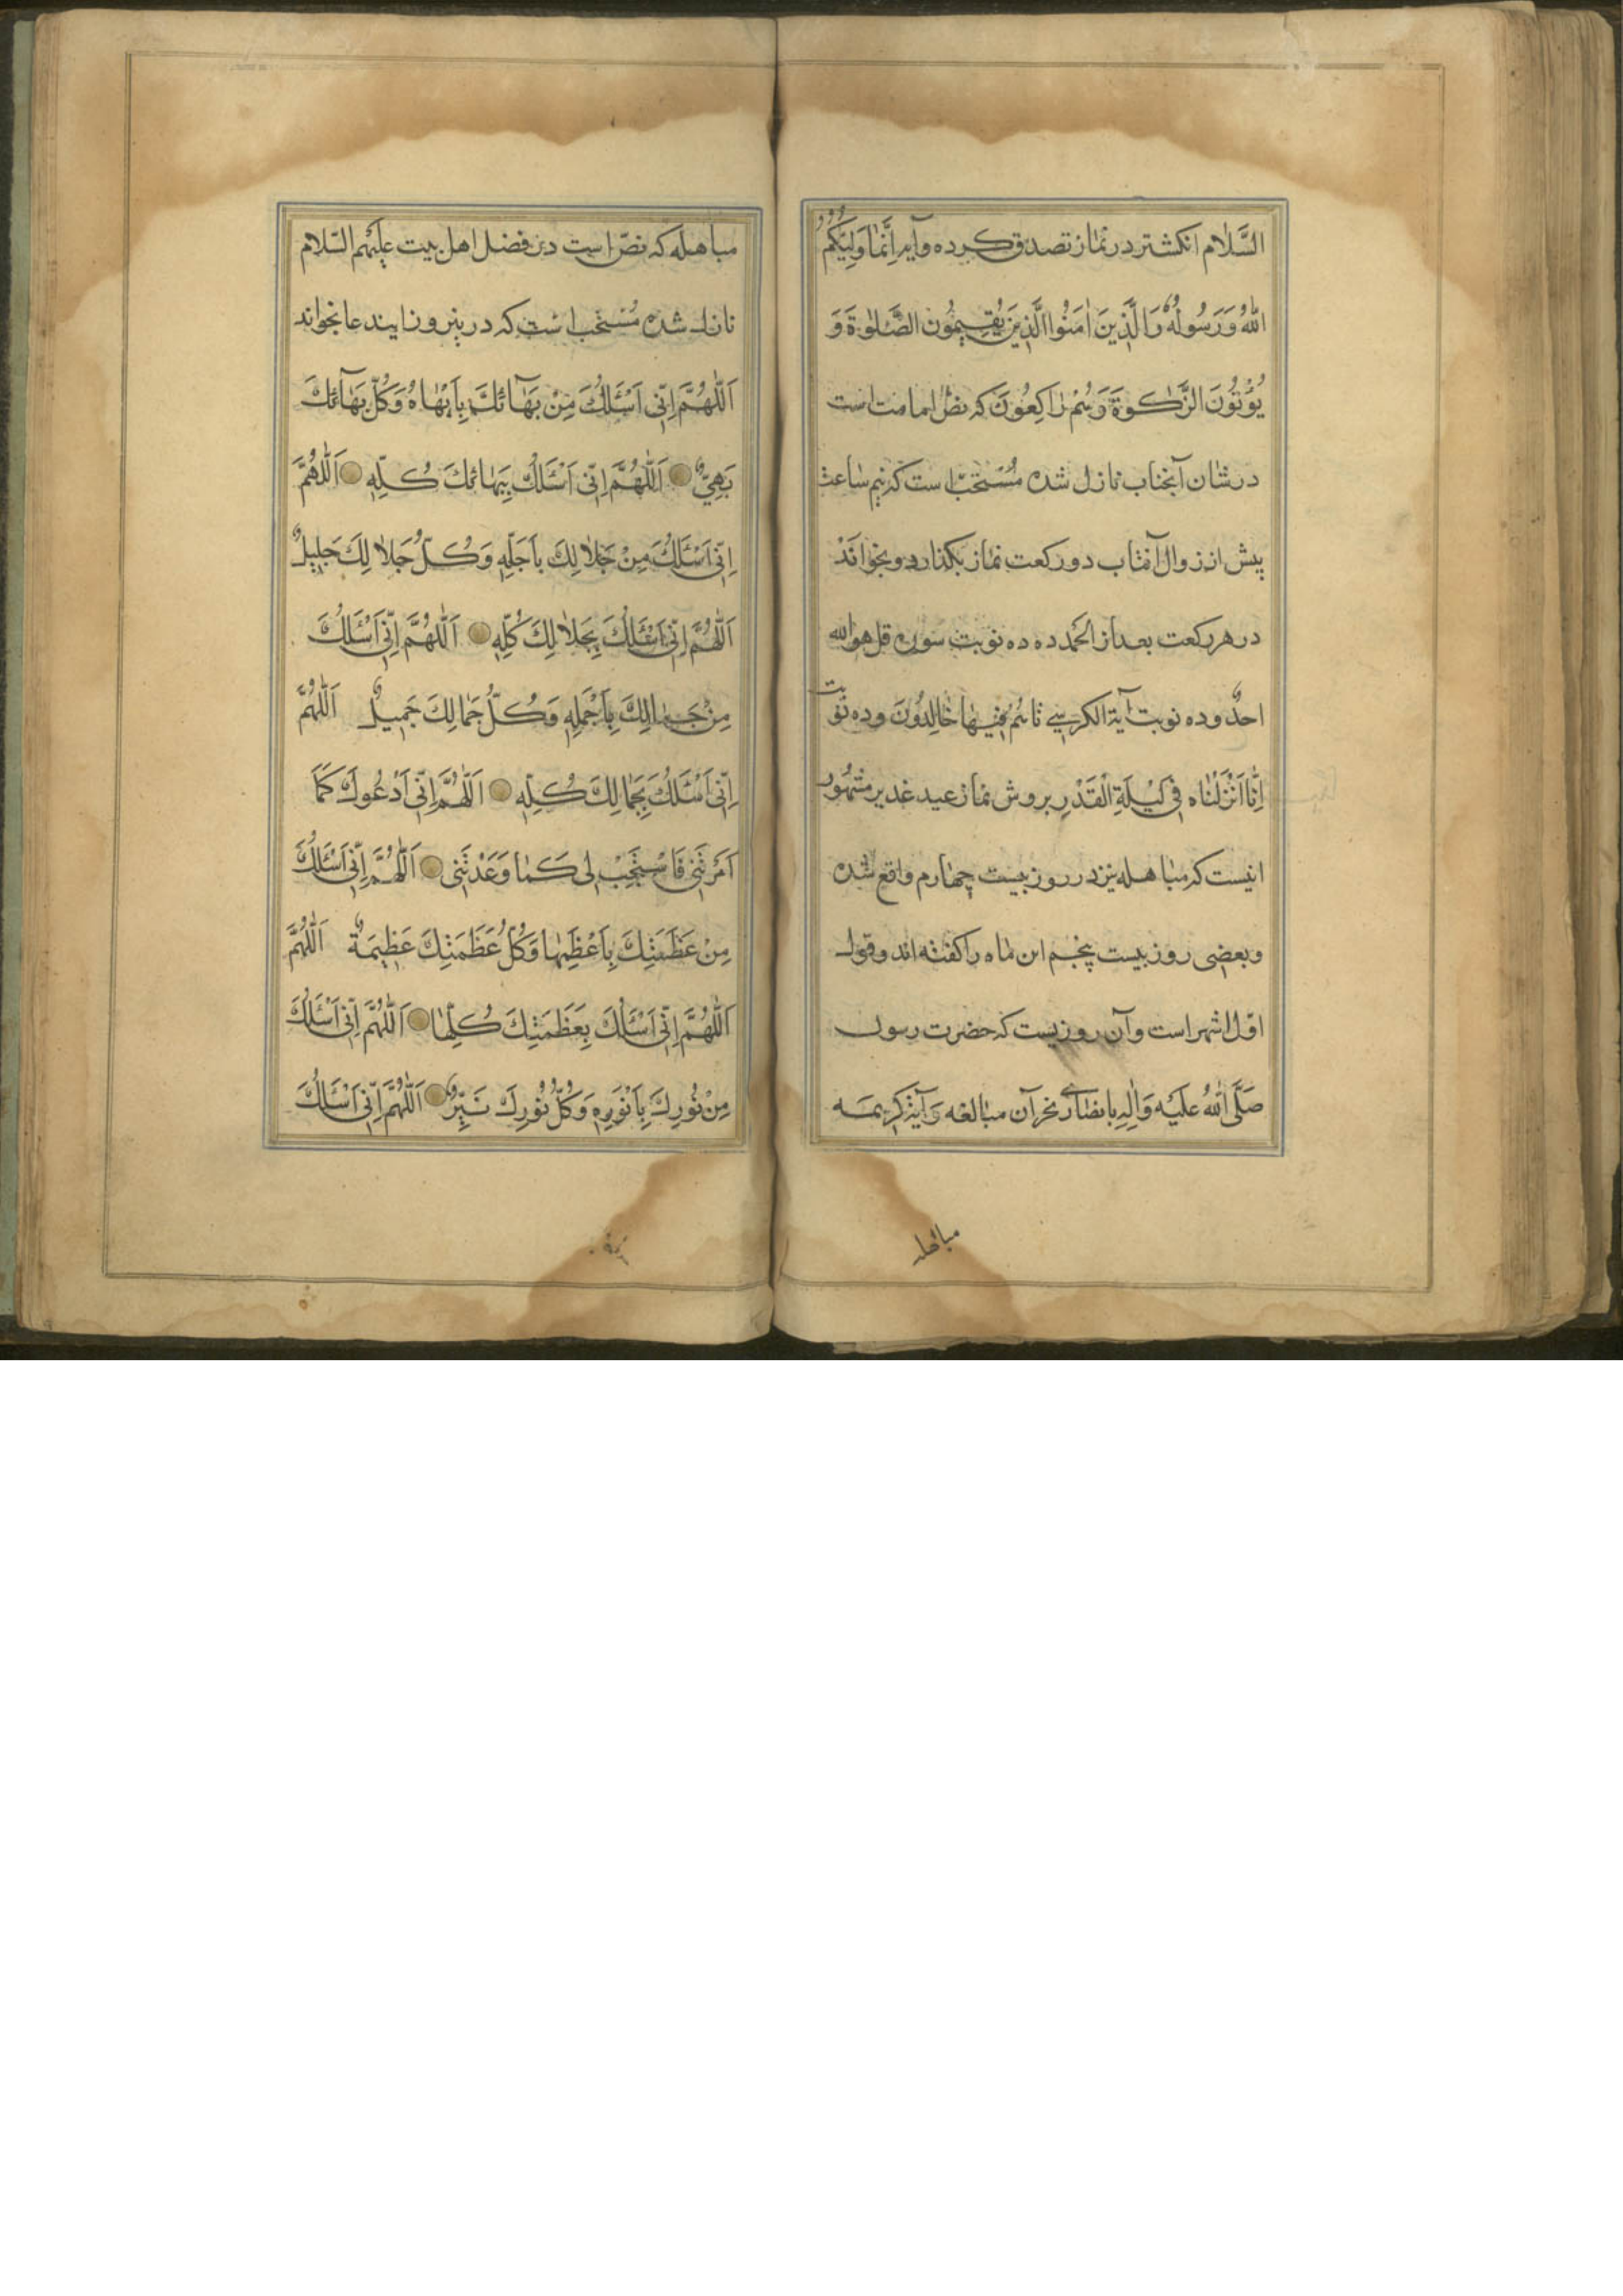 السَّلام انکشتر در نماز تصدق کرده وآیه اِنَّمٰا وَلِیُّکُمُ
اللّٰهُ وَرَسُولُهُ وَالَّذِینَ اٰمَنُوا الَّذِینَ یُقِیمُونَ الصَّلٰوةَ وَ
یُؤْتُونَ الزَّکٰوةَ وَهُمْ رٰاکِعُونَ که نصّ امامت است
در شان آنجناب نازل شده مُسْتَحَبّ است که نیم ساعت
پیش از زوال آفتاب دو رکعت نماز بکذارد و بخوانَدْ
در هر رکعت بعد از الحمد ده ده نوبت سوره قل هو الله
احدٌ و ده نوبت آیة الکرسی تا هُمْ فِیهٰا خٰالِدُونَ و ده نوبت
اِنّٰا اَنْزَلْنٰاه فِی لَیْلَةِ الْقَدْرِ بروش نماز عید غدیر مشهور
انیست که مباهله نیز در روز بیست چهارم واقع شده
وبعضی روز بیست پنجم این ماه را کفته اند وقول
اوّل اشهر است وآن روزیست که حضرت رسول
صَلَّی اللّٰهُ عَلَیْه وَاٰلِهِ با نصارٰی نجران مبالغه وَآیهٔ کریمه
مباهله
مباهله که نصّ است در فضل اهل بیت علیهم السّلام
نازل شده مُسْتَحَب است که درینروز ایندعا بخواند
اَللّٰهُمَّ اِنّی اَسْئَلُکَ مِنْ بَهٰآئِکَ بِاَبْهٰاهُ وَکُلُّ بَهٰآئِکَ
بَهِیٌّ اَللّٰهُمَّ اِنّی اَسْئَلُکَ بِبَهٰائِکَ کُلِّهِ اَللّٰهُمَّ
اِنّی اَسْئَلُکَ مِنْ جَلاٰلِکَ بِاَجَلِّهِ وَکُلُّ جَلاٰلِکَ جَلِیلٌ
اَللّٰهُمَّ اِنّی اَسْئَلُکَ بِجَلاٰلِکَ کُلِّهِ اَللّٰهُمَّ اِنّی اَسْئَلُکَ
مِنْ جَمٰالِکَ بِاَجْمَلِهِ وَکُلُّ جَمٰالِکَ جَمِیلٌ اَللّٰهُمَّ
اِنّی اَسْئَلُکَ بِجَمٰالِکَ کُلِّهِ اَللّٰهُمَّ اِنّی اَدْعُوکَ کَمٰا
اَمَرْتَنی فَاسْتَجِبْ لی کَمٰا وَعَدْتَنی اَللّٰهُمَّ اِنّی اَسْئَلُکَ
مِنْ عَظَمَتِکَ بِاَعْظَمِهٰا وَکُلُّ عَظَمَتِکَ عَظِیمَةٌ اَللّٰهُمَّ
اَللّٰهُمَّ اِنّی اَسْئَلُکَ بِعَظَمَتِکَ کُلِّهٰا اَللّٰهُمَّ اِنّی اَسْئَلُکَ
مِنْ نُورِکَ بِاَنْوَرِهِ وَکُلُّ نُورِکَ نَیِّرٌ اَللّٰهُمَّ اِنّی اَسْئَلُکَ